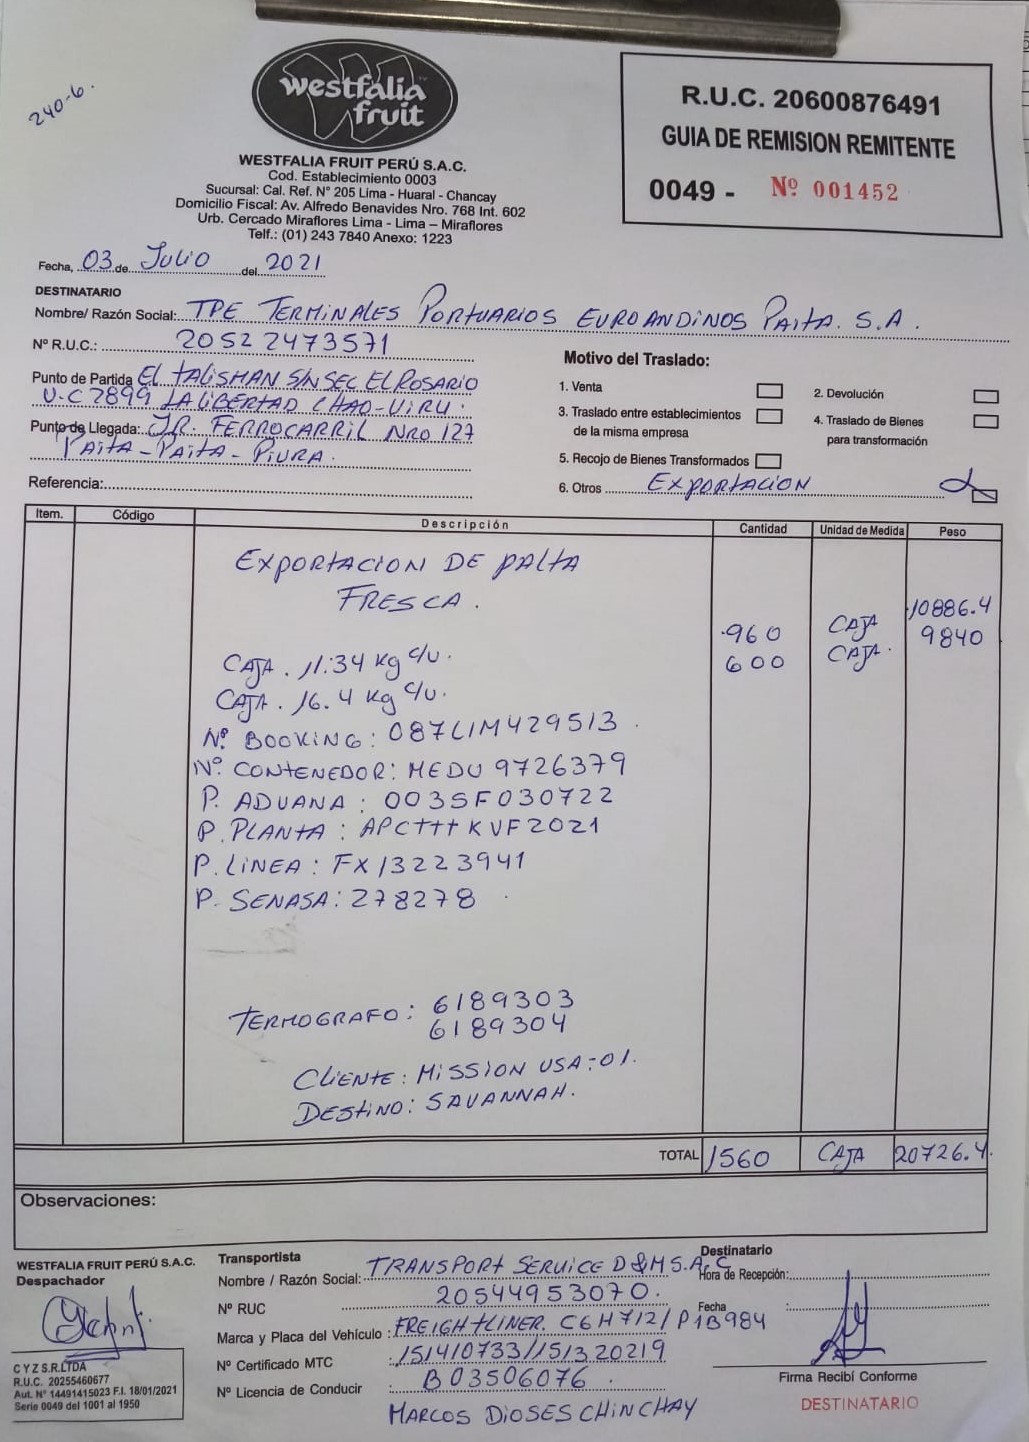 240-6.
westfalia
fruit
WESTFALIA FRUIT PERÚ S.A.C.
Cod. Establecimiento 0003
Sucursal: Cal. Ref. N° 205 Lima - Huaral - Chancay
Domicilio Fiscal: Av. Alfredo Benavides Nro. 768 Int. 602
Urb. Cercado Miraflores Lima - Lima – Miraflores
Telf.: (01) 243 7840 Anexo: 1223
R.U.C. 20600876491
GUIA DE REMISION REMITENTE
0049 - Nº 001452
Fecha, 03 de Julio del 2021
DESTINATARIO
Nombre/ Razón Social: TPE TERMINALES PORTUARIOS EUROANDINOS PAITA. S.A.
Nº R.U.C.: 20522473571
Punto de Partida EL TALISMAN S/N SEC EL ROSARIO
U.C 7899 LA LIBERTAD CHAO-VIRU.
Punto de Llegada: JR. FERROCARRIL NRO 127
PAITA - PAITA - PIURA.
Referencia:
Motivo del Traslado:
1. Venta
2. Devolución
3. Traslado entre establecimientos
de la misma empresa
4. Traslado de Bienes
para transformación
5. Recojo de Bienes Transformados
6. Otros EXPORTACION
Item. Código Descripción Cantidad Unidad de Medida Peso
EXPORTACION DE PALTA
FRESCA.
CAJA. 11.34 kg c/u. 960 CAJA 10886.4
CAJA. 16.4 kg c/u. 600 CAJA. 9840
Nº BOOKING: 087LIM429513
Nº CONTENEDOR: MEDU 9726379
P. ADUANA: 003SF030722
P. PLANTA: APCTTT KVF2021
P. LINEA: FX13223941
P. SENASA: 278278
TERMOGRAFO: 6189303
6189304
CLIENTE: MISSION USA-01.
DESTINO: SAVANNAH.
TOTAL 1560 CAJA 20726.4
Observaciones:
WESTFALIA FRUIT PERÚ S.A.C.
Despachador
C Y Z S.R.LTDA
R.U.C. 20255460677
Aut. N° 14491415023 F.I. 18/01/2021
Serie 0049 del 1001 al 1950
Transportista
Nombre / Razón Social: TRANSPORT SERVICE D&M S.A.C
Nº RUC 20544953070.
Marca y Placa del Vehículo: FREIGHTLINER. C6H712/P1B984
Nº Certificado MTC: 151410733/151320219
Nº Licencia de Conducir: B03506076.
MARCOS DIOSES CHINCHAY
Destinatario
Hora de Recepción:
Fecha :
Firma Recibí Conforme
DESTINATARIO